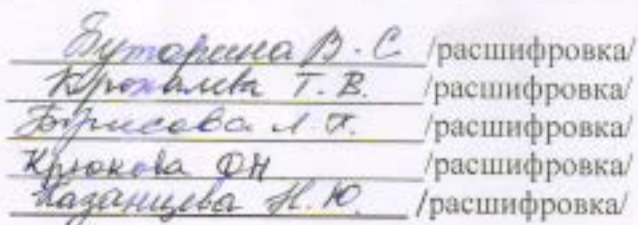 Буторина В. С. /расшифровка/
Крохалева Т. В. /расшифровка/
Борисова Л. П. /расшифровка/
Крюкова ФН /расшифровка/
Казанцева Н. Ю. /расшифровка/